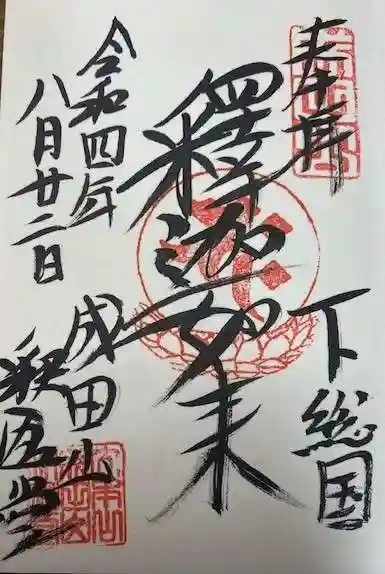 奉拝
下総国
釋迦如来
令和四年
八月廿二日
成田山
釈迦堂